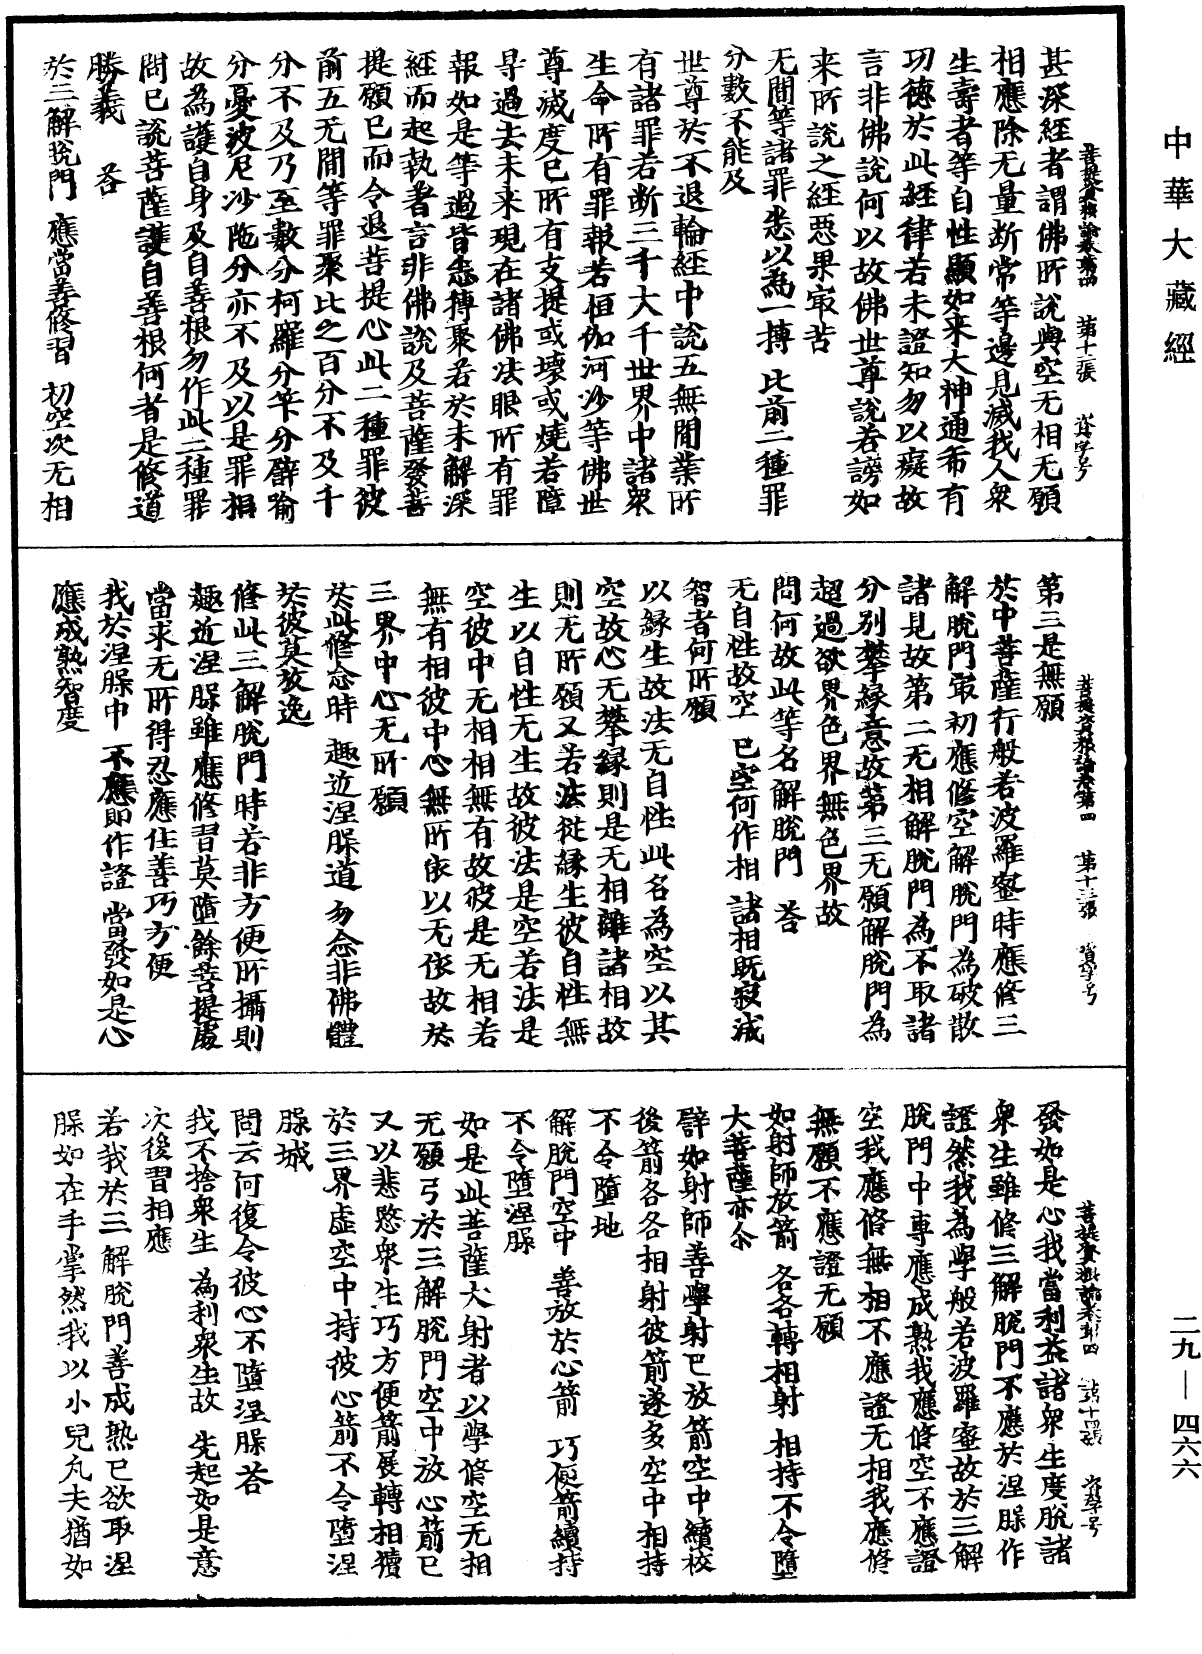 中華大藏經
菩提資糧論卷第四　第十二張　資字号
甚深經者謂佛所說與空无相无願
相應除无量斷常等邊見滅我人衆
生壽者等自性顯如來大神通希有
功德於此經律若未證知勿以癡故
言非佛說何以故佛世尊說若謗如
來所說之經惡果㝡苦
无間等諸罪　悉以為一摶　此前二種罪
分數不能及
世尊於不退輪經中說五無間業所
有諸罪若斷三千大千世界中諸衆
生命所有罪報若恒伽河沙等佛世
尊滅度已所有支提或壞或燒若障
㝵過去未來現在諸佛法眼所有罪
報如是等過皆悉摶聚若於未解深
經而起執著言非佛說及菩薩發菩
提願已而令退菩提心此二種罪彼
前五无間等罪聚比之百分不及千
分不及乃至數分柯羅分竿分譬喻
分憂波尼沙陁分亦不及以是罪相
故為護自身及自善根勿作此二種罪
問已說菩薩護自善根何者是修道
勝義　荅
於三解脫門　應當善修習　初空次无相
菩提資糧論卷第四　第十三張　資字号
第三是無願
於中菩薩行般若波羅蜜時應修三
解脫門㝡初應修空解脫門為破散
諸見故第二无相解脫門為不取諸
分別攀緣意故第三无願解脫門為
超過欲界色界無色界故
問何故此等名解脫門　荅
无自性故空　已空何作相　諸相既寂滅
智者何所願
以緣生故法无自性此名為空以其
空故心无攀緣則是无相離諸相故
則无所願又若法從緣生彼自性無
生以自性无生故彼法是空若法是
空彼中无相相無有故彼是无相若
無有相彼中心無所依以无依故於
三界中心无所願
於此修念時　趣近涅槃道　勿念非佛體
於彼莫放逸
修此三解脫門時若非方便所攝則
趣近涅槃雖應修習莫墮餘菩提處
當求无所得忍應住善巧方便
我於涅槃中　不應即作證　當發如是心
應成熟智度
菩提資糧論卷第四　第十四張　資字号
發如是心我當利益諸衆生度脫諸
衆生雖修三解脫門不應於涅槃作
證然我為學般若波羅蜜故於三解
脫門中專應成熟我應修空不應證
空我應修無相不應證无相我應修
無願不應證无願
如射師放箭　各各轉相射　相持不令墮
大菩薩亦尒
譬如射師善學射已放箭空中續放
後箭各各相射彼箭遂多空中相持
不令墮地
解脫門空中　善放於心箭　巧便箭續持
不令墮涅槃
如是此菩薩大射者以學修空无相
无願弓於三解脫門空中放心箭已
又以悲愍衆生巧方便箭展轉相續
於三界虛空中持彼心箭不令墮涅
槃城
問云何復令彼心不墮涅槃　荅
我不捨衆生　為利衆生故　先起如是意
次後習相應
若我於三解脫門善成熟已欲取涅
槃如在手掌然我以小兒凡夫猶如
二九—四六六